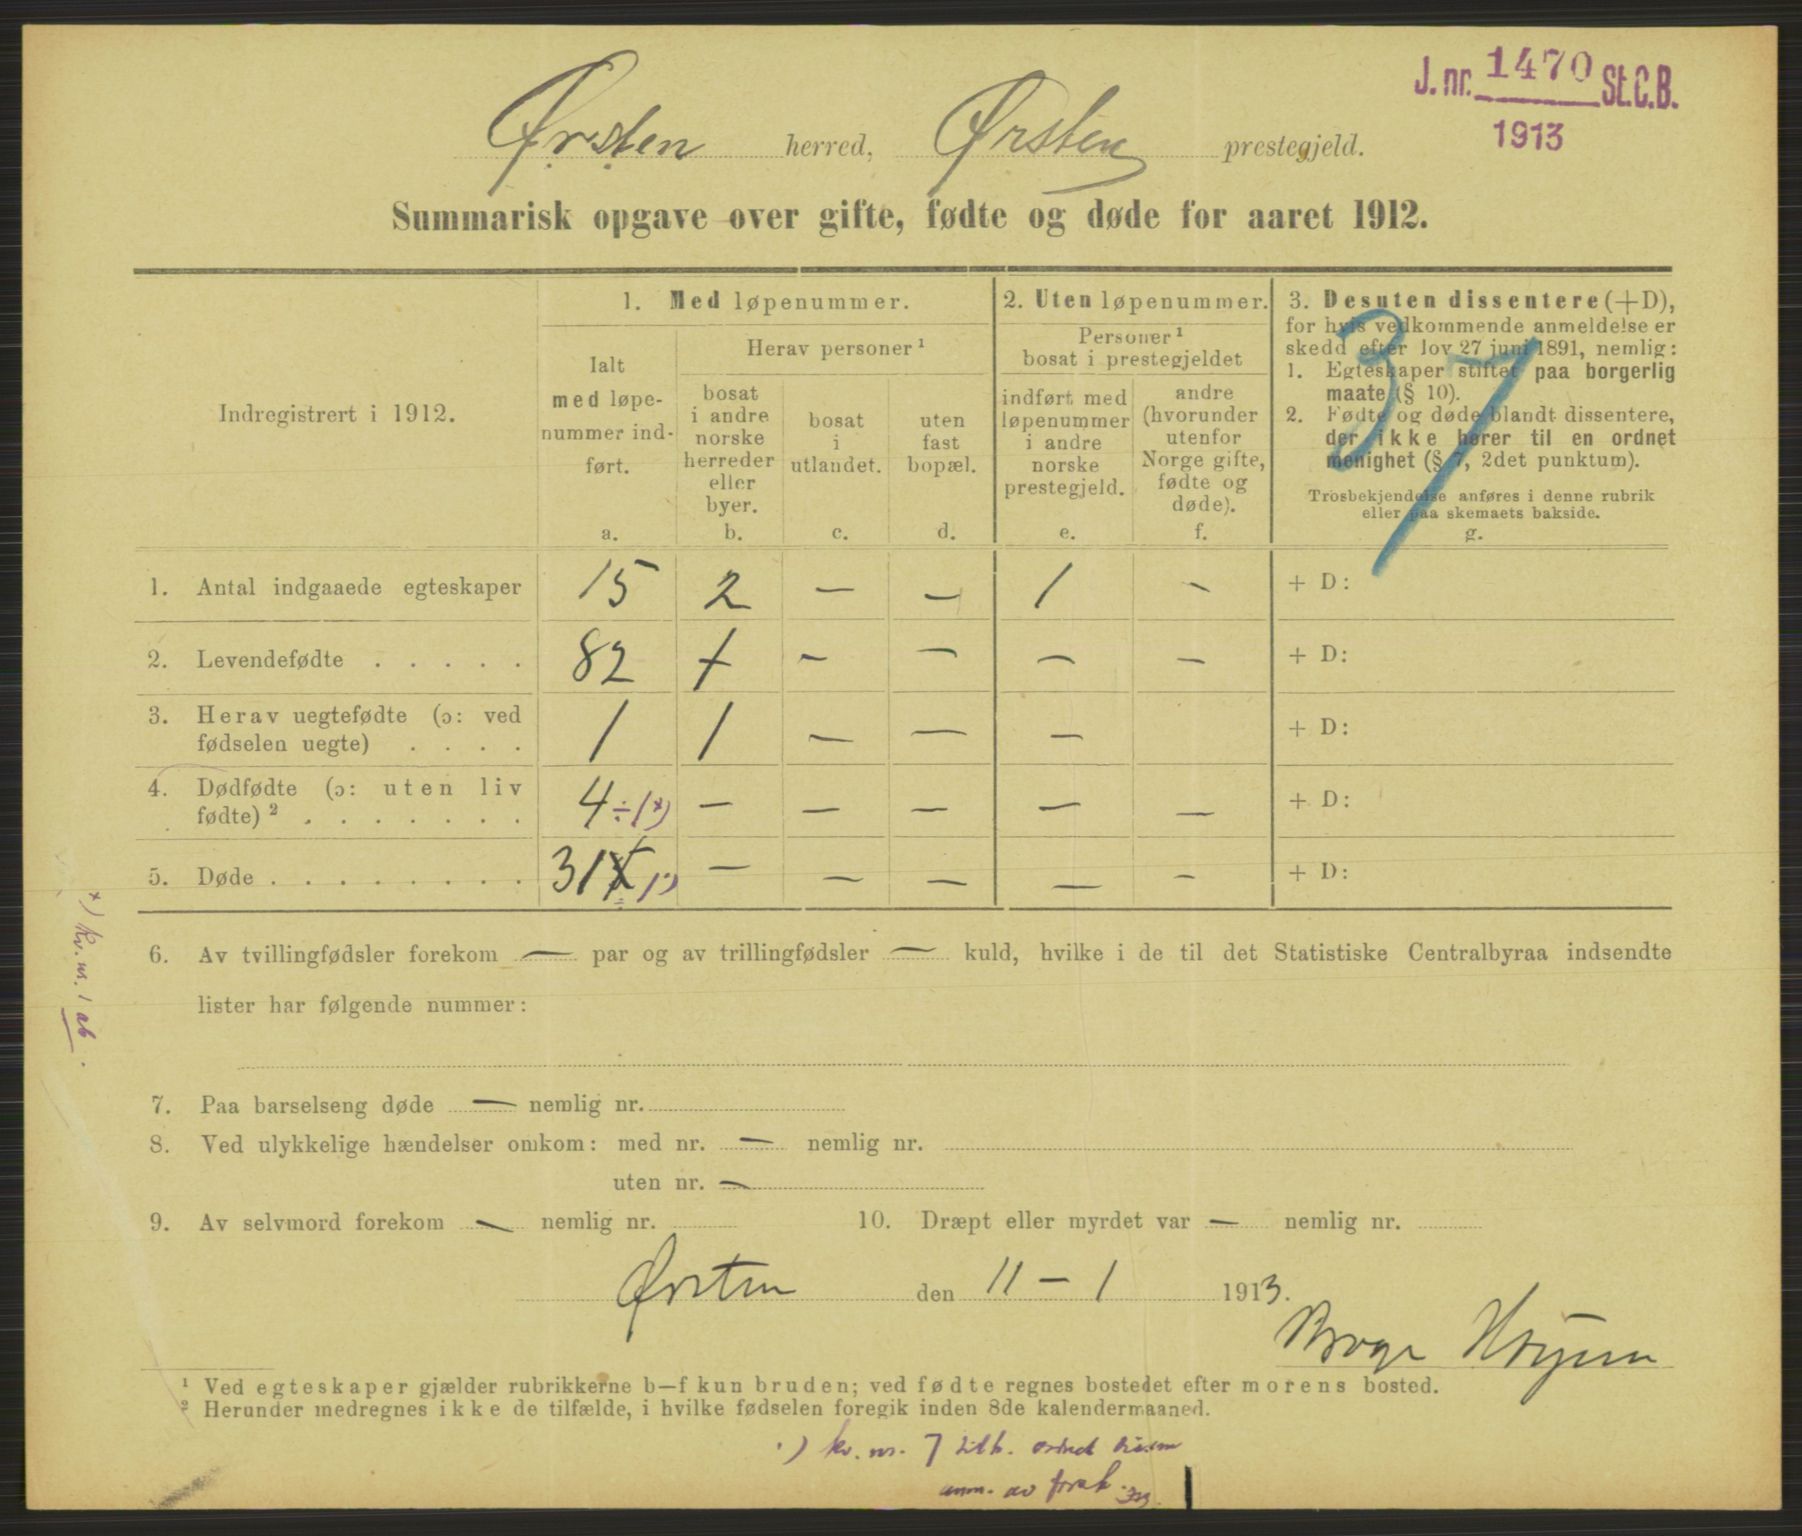 J. nr. 1470 St.C.B.
1913
Ørsten herred, Ørsten prestegjeld.
Summarisk opgave over gifte, fødte og døde for aaret 1912.
Indregistrert i 1912.
1. Med løpenummer.
Ialt
med løpe-
nummer ind-
ført.
a.
Herav personer ¹
bosat
i andre
norske
herreder
eller
byer.
b.
bosat
i
utlandet.
c.
uten
fast
bopæl.
d.
2. Uten løpenummer.
Personer ¹
bosat i prestegjeldet
indført med
løpenummer
i andre
norske
prestegjeld.
e.
andre
(hvorunder
utenfor
Norge gifte,
fødte og
døde).
f.
3. Desuten dissentere (+D),
for hvis vedkommende anmeldelse er
skedd efter lov 27 juni 1891, nemlig:
1. Egteskaper stiftet paa borgerlig
maate (§ 10).
2. Fødte og døde blandt dissentere,
der ikke hører til en ordnet
menighet (§ 7, 2det punktum).
Trosbekjendelse anføres i denne rubrik
eller paa skemaets bakside.
g.
37
1. Antal indgaaede egteskaper 15 2 — — 1 — + D:
2. Levendefødte . . . . . 82 + — — — — + D:
3. Herav uegtefødte (ɔ: ved
fødselen uegte) . . . . 1 1 — — — + D:
4. Dødfødte (ɔ: uten liv
fødte) ² . . . . . . . 4 ÷1 ×) — — — — — + D:
5. Døde . . . . . . . . 31 — — — — — + D:
×) Kv. nr. 1 ab.
6. Av tvillingfødsler forekom — par og av trillingfødsler — kuld, hvilke i de til det Statistiske Centralbyraa indsendte
lister har følgende nummer:
7. Paa barselseng døde — nemlig nr.
8. Ved ulykkelige hændelser omkom: med nr. — nemlig nr.
uten nr. —
9. Av selvmord forekom — nemlig nr. 10. Dræpt eller myrdet var — nemlig nr.
Ørsten den 11 – 1 1913.
¹ Ved egteskaper gjælder rubrikkerne b—f kun bruden; ved fødte regnes bostedet efter morens bosted.
² Herunder medregnes ikke de tilfælde, i hvilke fødselen foregik inden 8de kalendermaaned.
·) kv. nr. 7
anm. av